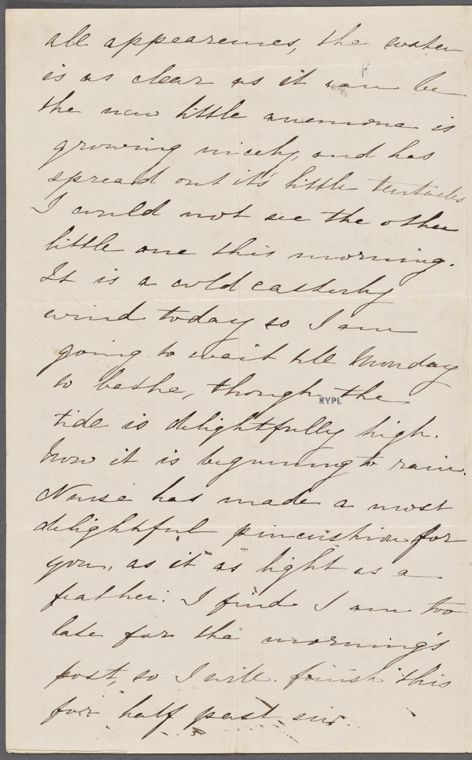 all appearences, the water
is as clear as it can be
the new little anemone is
growing nicely, and has
spread out it's little tentacles
I could not see the other
little one this morning.
It is a cold easterly
wind today so I am
going to wait till Monday
to bathe, though the
NYPL
tide is delightfully high.
Now it is beginning to rain.
Nurse has made a most
delightful pincushion for
you, as it as light as a
feather: I find I am too
late for the morning's
post, so I will finish this
for half past six.